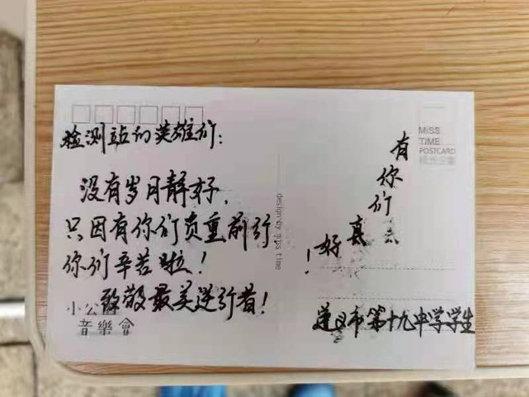 检测站的英雄们：
没有岁月静好，
只因有你们负重前行
你们辛苦啦！
致敬最美逆行者！
小公
音樂會
design by mps time
MISS
TIME
POSTCARD
有你们真好！
遵义市第十九中学学生